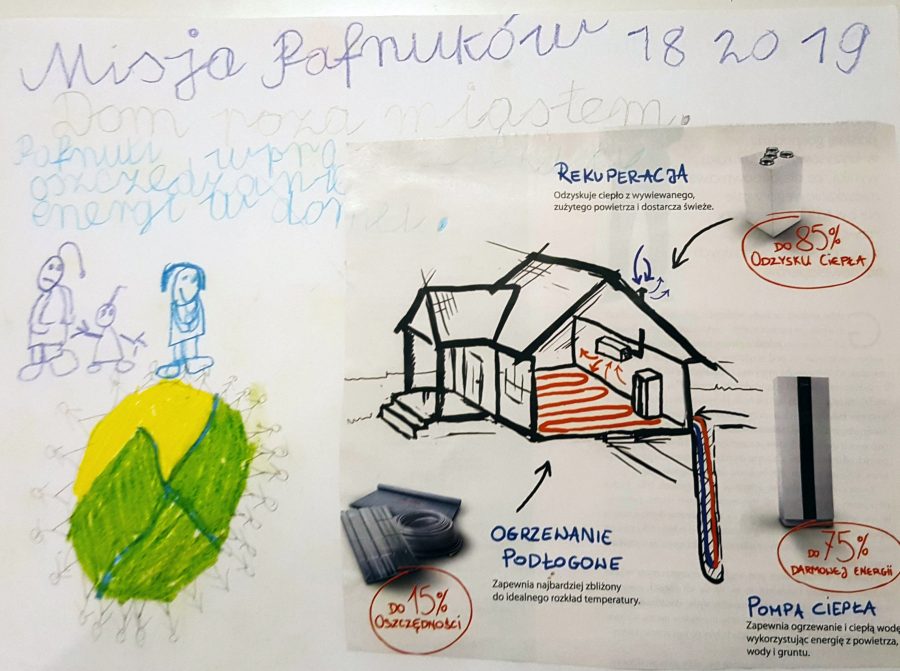 Misja Pafnuków 18 20 19
Dom poza miastem.
Pafnuki wpro
oszczędzanie
energi w domu.
REKUPERACJA
Odzyskuje ciepło z wywiewanego,
zużytego powietrza i dostarcza świeże.
DO 85%
ODZYSKU CIEPŁA
OGRZEWANIE
PODŁOGOWE
Zapewnia najbardziej zbliżony
do idealnego rozkład temperatury.
DO 15%
OSZCZĘDNOŚCI
DO 75%
DARMOWEJ ENERGII
POMPA CIEPŁA
Zapewnia ogrzewanie i ciepłą wodę
wykorzystując energię z powietrza,
wody i gruntu.